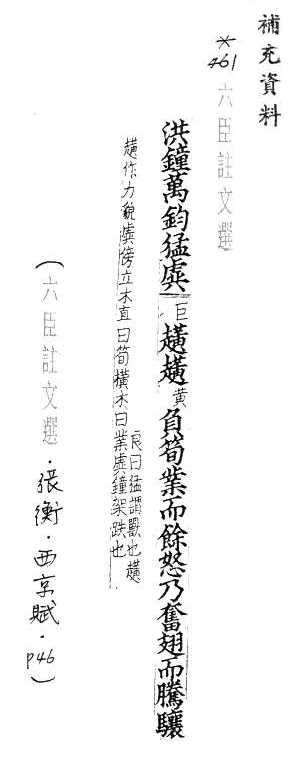 補充資料
*461 六臣註文選
洪鐘萬鈞猛虡巨趪趪黃負筍業而餘怒乃奮翅而騰驤
良曰猛謂獸也趪
趪作力貌虡傍立木直曰筍橫木曰業虡鐘架跌也
(六臣註文選・張衡・西京賦・p46)